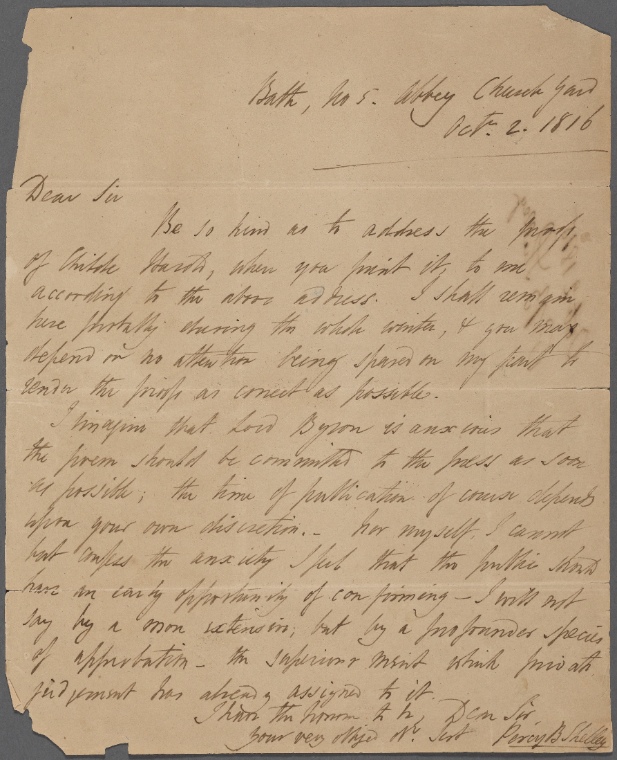 Bath, No 5. Abbey Church Yard
Octr. 2. 1816
Dear Sir
Be so kind as to address the proofs
of Childe Harold, when you print it, to me
according to the above address. I shall remain
here probably during the whole winter, & you may
depend on no attention being spared on my part to
render the proofs as correct as possible.
I imagine that Lord Byron is anxious that
the poem should be committed to the press as soon
as possible; the time of publication of course depends
upon your own discretion. – For myself I cannot
but confess the anxiety I feel that the public should
have an early opportunity of confirming – I will not
say by a more extensive, but by a profounder species
of approbation – the superior merit which private
judgement has already assigned to it.
I have the honor to be, Dear Sir,
Your very obliged St. Servt Percy B Shelley